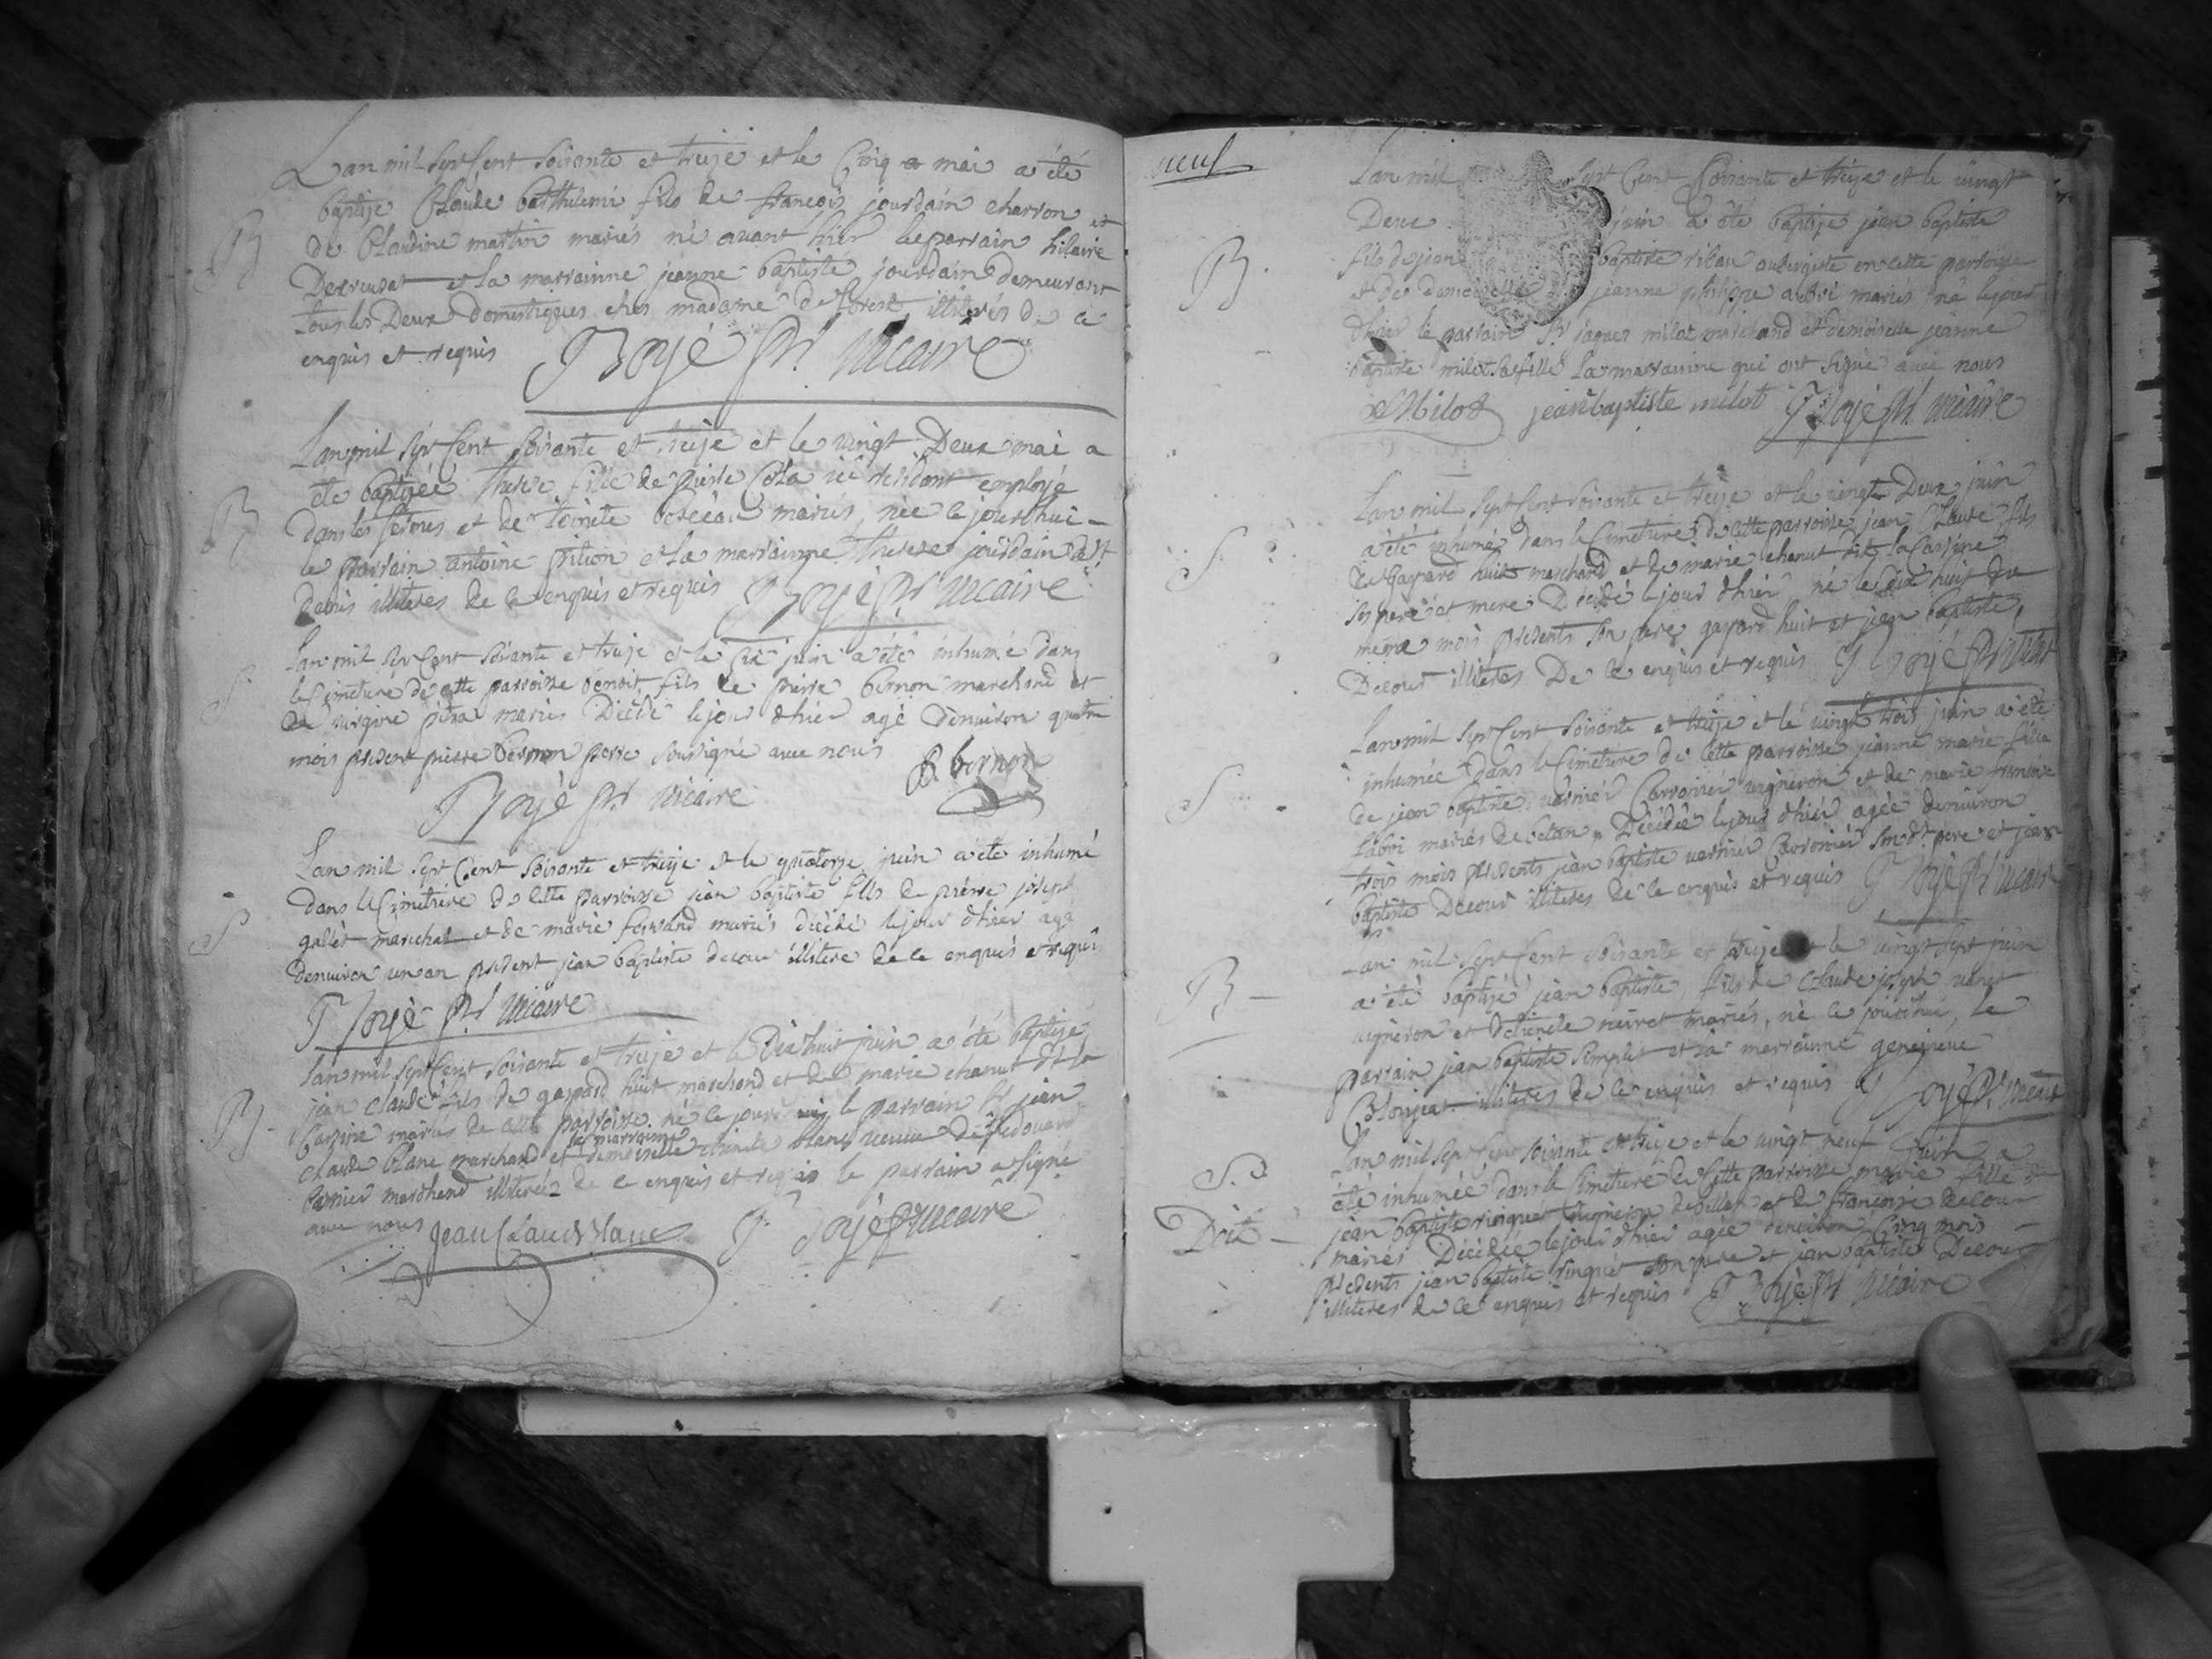 Lan mil sept Cent soixante et treize et le Cinq mai a été
B baptisé Claude barthelemi fils de francois jourdain charron et
de Claudine martin mariés né avant hier le parrain hilaire
et la marrainne jeanne baptiste jourdain demeurant
tous les Deux domestiques ches madame de illiterés de ce
enquis et requis Royé ptre vicaire
Lan mil sept Cent soixante et treize et le vingt Deux mai a
B été baptizée therese fille de pierre Cola ici residant employé
dans les fermes et de mariés, née ce jourdhui
le parrain antoine pition et la marrainne therese jourdain
illiteres de ce enquis et requis Royé ptre vicaire
Lan mil sept Cent soixante et treize et le six juin a été inhumé dans
S le Cimetiere de cette parroisse benoit fils de pierre bernon marchand et
de virgine mariés Décédé le jour dhier agé denviron quatre
mois présent pierre bernon pere soussigné avec nous B. bernon
Royé ptre vicaire
Lan mil sept Cent soixante et treize et le quatorze juin a été inhumé
S dans le Cimetière de cette parroisse jean baptiste fils de pierre joseph
gallet marechal et de marie mariés décédé le jour dhier agé
denviron un an présent jean baptiste decour illitere de ce enquis et requis
Royé ptre vicaire
Lan mil sept Cent soixante et treize et le Dix huit juin a été baptisé
B jean claude fils de gaspard huit marchand et de marie chanut dit la
Cassine mariés de cette parroisse né ce jourdhui le parrain Sr jean
claude blanc marchand et la marraine demoiselle blanc veuve de
marchand illiterée de ce enquis et requis le parrain a signé
avec nous Jean Claude blanc Royé ptre vicaire
neuf
Lan mil sept Cent soixante et treize et le vingt
Deux juin a été baptisé jean baptiste
B fils de jean baptiste riban aubergiste en cette parroisse
et de demoiselle jeanne philippe aubri mariés né le jour
dhier le parrain Sr jaques milot marchand et demoiselle jeanne
baptiste milot sa fille la marrainne qui ont signé avec nous
Milot jeanbaptiste milot Royé ptre vicaire
Lan mil sept Cent soixante et treize et le vingt Deux juin
S a été inhumé dans le Cimetiere de cette parroisse jean Claude fils
de Gaspard huit marchand et de marie chanut dit la Cassine
ses pere et mere Décédé le jour dhier né le dix huit du
meme mois présents son pere gaspard huit et jean baptiste
Decour illiteres De ce enquis et requis Royé ptre vicaire
Lan mil sept Cent soixante et treize et le vingt trois juin a été
S inhumée dans le Cimetiere de cette parroisse jeanne marie fille
de jean baptiste vernier vigneron et de marie francoise
mariés Décédée le jour dhier agée denviron
trois mois présents jean baptiste vernier son dt pere et jean
baptiste Decour illiteres de ce enquis et requis Royé ptre vicaire
Lan mil sept Cent soixante et treize et le vingt sept juin
B a été baptisé jean baptiste, fils de Claude joseph
vigneron et detiennete mariés, né ce jourdhui, le
parrain jean baptiste simplet et la marrainne genevieve
illiteres de ce enquis et requis Royé ptre vicaire
Lan mil sept Cent soixante et treize et le vingt neuf juin a
S. été inhumée dans le Cimetiere de cette parroisse marie fille de
Doit jean baptiste vigneron et de francoise decour
mariés Décédée le jour dhier agée denviron Cinq mois
présents jean baptiste son pere et jean baptiste Decour
illiteres de ce enquis et requis Royé ptre vicaire